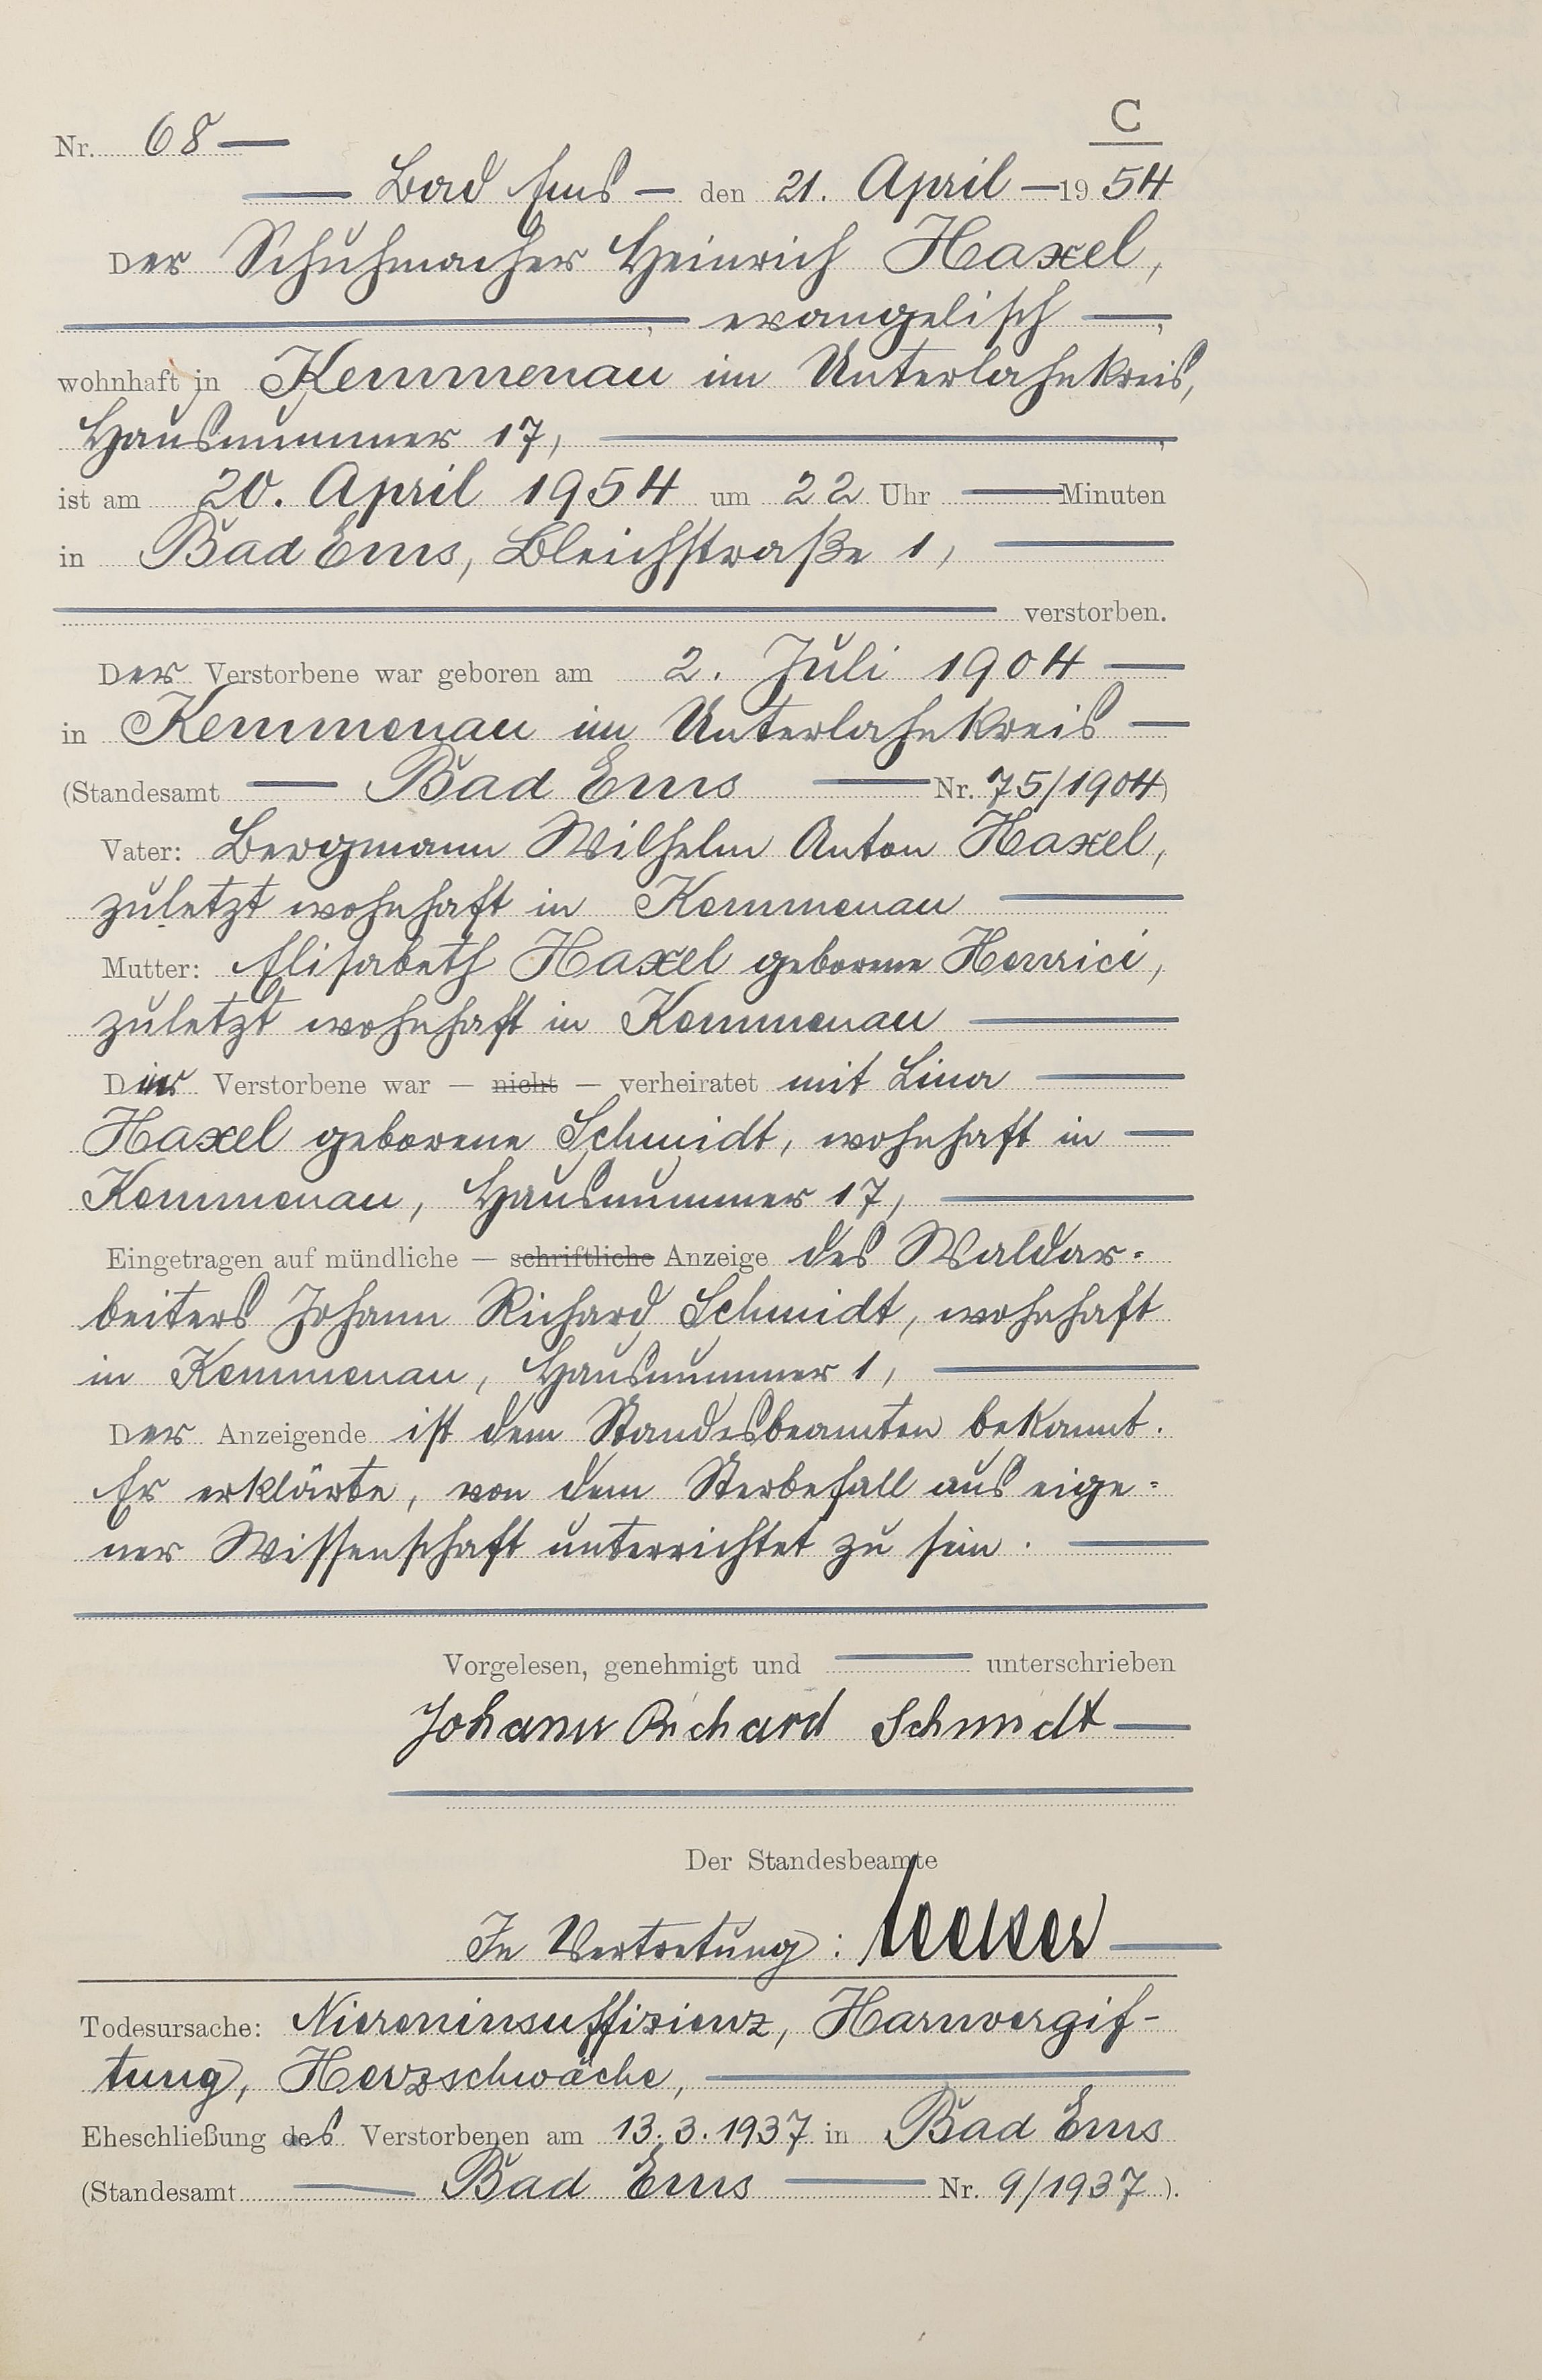 C
Nr. 68 —
— Bad Ems — den 21. April — 19 54
Der Schuhmacher Heinrich Haxel,
—, evangelisch —,
wohnhaft in Kemmenau im Unterlahnkreis,
Hausnummer 17, —,
ist am 20. April 1954 um 22 Uhr — Minuten
in Bad Ems, Bleichstraße 1, —
— verstorben.
Der Verstorbene war geboren am 2. Juli 1904 —
in Kemmenau im Unterlahnkreis —
(Standesamt — Bad Ems — Nr. 75/1904)
Vater: Bergmann Wilhelm Anton Haxel,
zuletzt wohnhaft in Kemmenau —
Mutter: Elisabeth Haxel geborene Henrici,
zuletzt wohnhaft in Kemmenau —
Der Verstorbene war — nicht — verheiratet mit Lina —
Haxel geborene Schmidt, wohnhaft in —
Kemmenau, Hausnummer 17, —
Eingetragen auf mündliche — schriftliche Anzeige des Waldar=
beiters Johann Richard Schmidt, wohnhaft
in Kemmenau, Hausnummer 1, —
Der Anzeigende ist dem Standesbeamten bekannt.
Er erklärte, von dem Sterbefall aus eige=
ner Wissenschaft unterrichtet zu sein. —
Vorgelesen, genehmigt und — unterschrieben
Johann Richard Schmidt —
Der Standesbeamte
In Vertretung: —
Todesursache: Niereninsuffizienz, Harnvergif-
tung, Herzschwäche, —
Eheschließung des Verstorbenen am 13.3.1937 in Bad Ems
(Standesamt — Bad Ems — Nr. 9/1937).